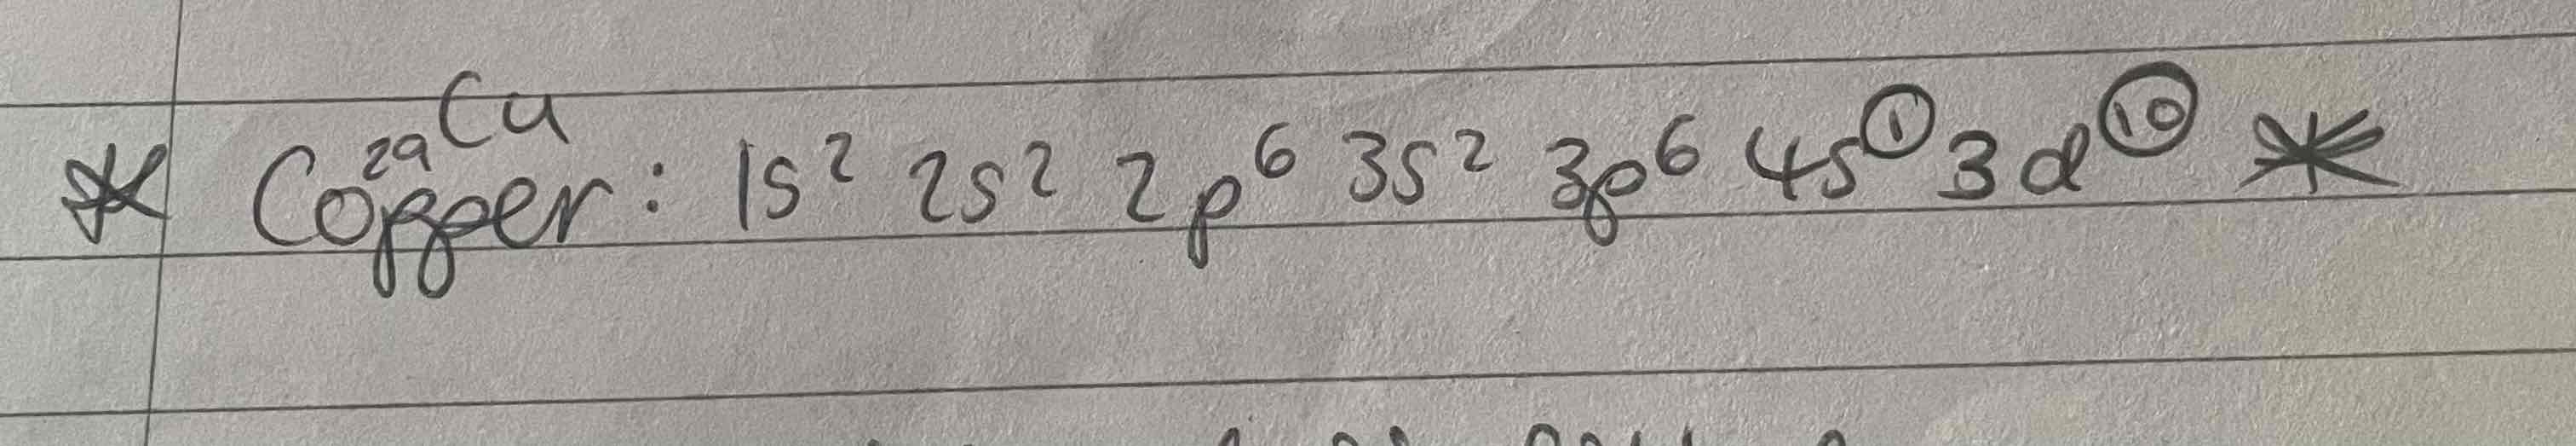 ₂₉Cu
* Copper: 1s² 2s² 2p⁶ 3s² 3p⁶ 4s① 3d⑩ *